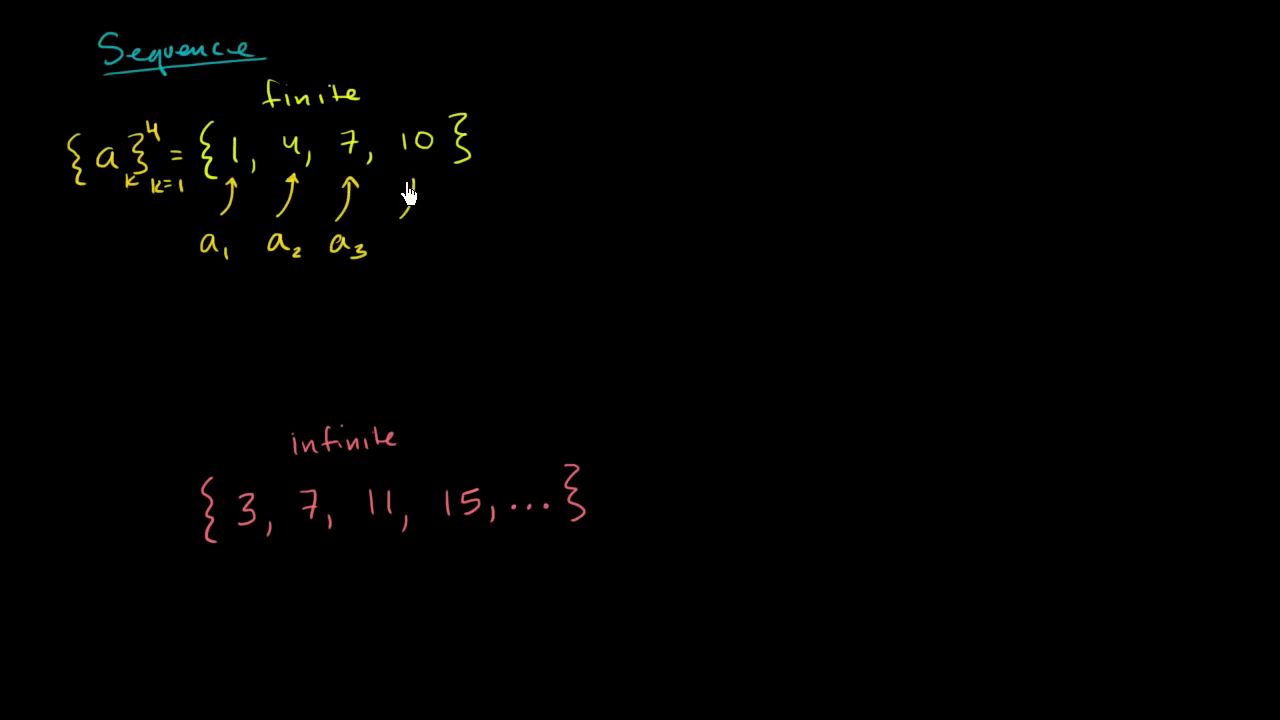 Sequence
finite
{a_k}^4_{k=1} = {1, 4, 7, 10}
a_1 a_2 a_3
infinite
{3, 7, 11, 15, ...}